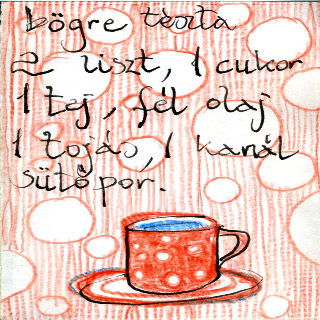 bögre tészta
2 liszt, 1 cukor
1 tej, fél olaj
1 tojás, 1 kanál
sütőpor.